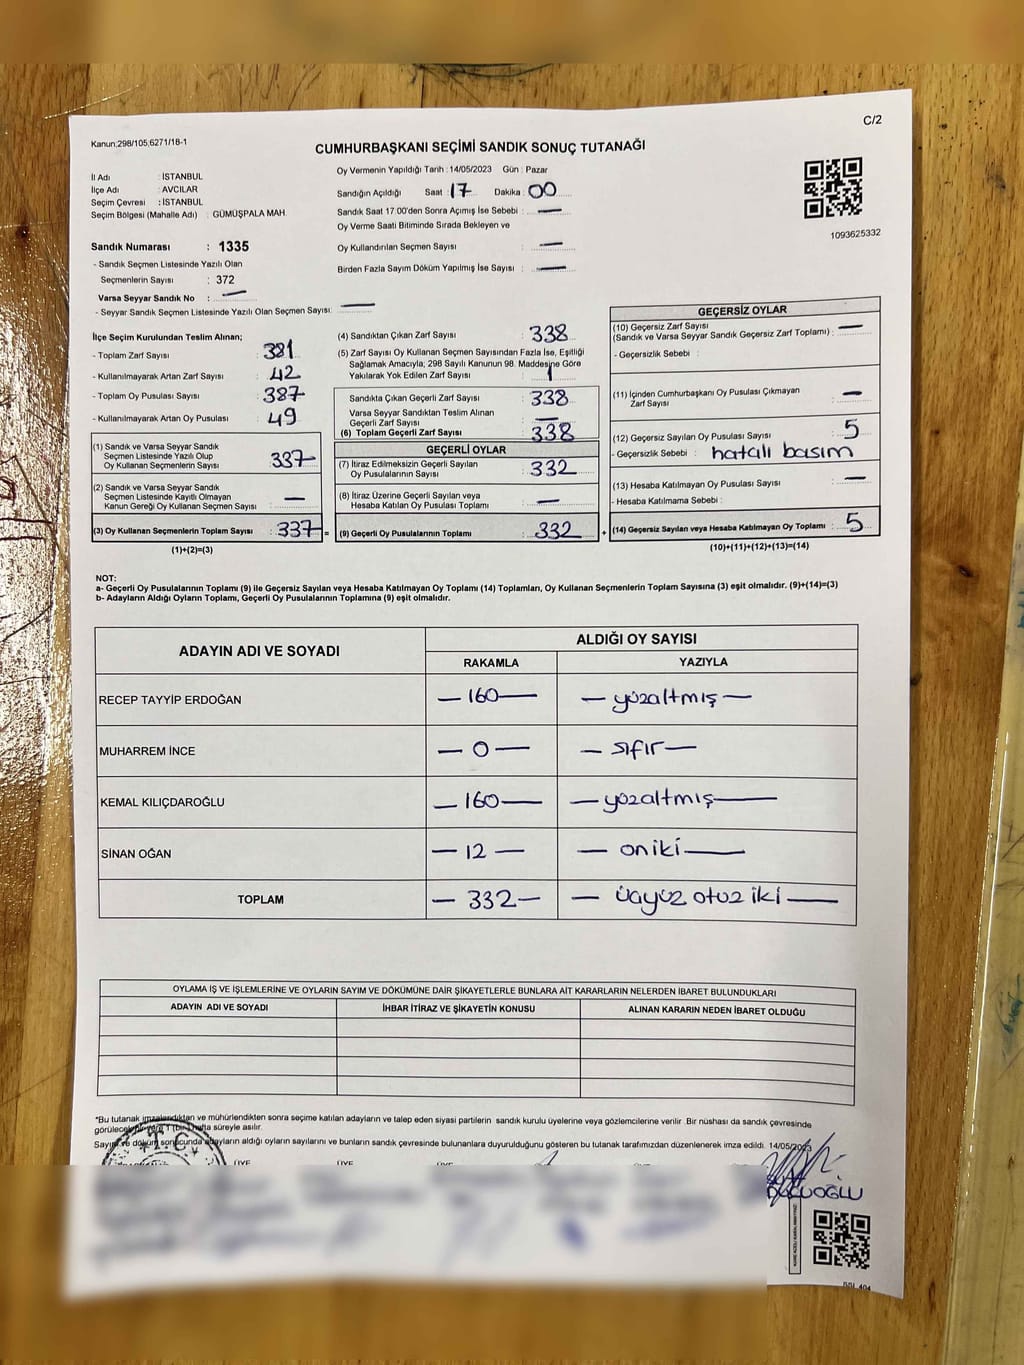 Kanun:298/105;6271/18-1
C/2
CUMHURBAŞKANI SEÇİMİ SANDIK SONUÇ TUTANAĞI
İl Adı : İSTANBUL
İlçe Adı : AVCILAR
Seçim Çevresi : İSTANBUL
Seçim Bölgesi (Mahalle Adı) : GÜMÜŞPALA MAH.
Sandık Numarası : 1335
- Sandık Seçmen Listesinde Yazılı Olan
Seçmenlerin Sayısı : 372
Varsa Seyyar Sandık No : —
- Seyyar Sandık Seçmen Listesinde Yazılı Olan Seçmen Sayısı: —
Oy Vermenin Yapıldığı Tarih : 14/05/2023 Gün : Pazar
Sandığın Açıldığı Saat : 17 Dakika : 00
Sandık Saat 17.00'den Sonra Açımış İse Sebebi : —
Oy Verme Saati Bitiminde Sırada Bekleyen ve
Oy Kullandırılan Seçmen Sayısı : —
Birden Fazla Sayım Döküm Yapılmış İse Sayısı : —
1093625332
İlçe Seçim Kurulundan Teslim Alınan;
- Toplam Zarf Sayısı : 381
- Kullanılmayarak Artan Zarf Sayısı : 42
- Toplam Oy Pusulası Sayısı : 387
- Kullanılmayarak Artan Oy Pusulası : 49
(1) Sandık ve Varsa Seyyar Sandık
Seçmen Listesinde Yazılı Olup
Oy Kullanan Seçmenlerin Sayısı : 337
(2) Sandık ve Varsa Seyyar Sandık
Seçmen Listesinde Kayıtlı Olmayan
Kanun Gereği Oy Kullanan Seçmen Sayısı : —
(3) Oy Kullanan Seçmenlerin Toplam Sayısı : 337 =
(1)+(2)=(3)
(4) Sandıktan Çıkan Zarf Sayısı : 338
(5) Zarf Sayısı Oy Kullanan Seçmen Sayısından Fazla İse, Eşitliği
Sağlamak Amacıyla; 298 Sayılı Kanunun 98. Maddesine Göre
Yakılarak Yok Edilen Zarf Sayısı : 1
Sandıkta Çıkan Geçerli Zarf Sayısı : 338
Varsa Seyyar Sandıktan Teslim Alınan
Geçerli Zarf Sayısı : —
(6) Toplam Geçerli Zarf Sayısı : 338
GEÇERLİ OYLAR
(7) İtiraz Edilmeksizin Geçerli Sayılan
Oy Pusulalarının Sayısı : 332
(8) İtiraz Üzerine Geçerli Sayılan veya
Hesaba Katılan Oy Pusulası Toplamı : —
(9) Geçerli Oy Pusulalarının Toplamı : 332 +
GEÇERSİZ OYLAR
(10) Geçersiz Zarf Sayısı
(Sandık ve Varsa Seyyar Sandık Geçersiz Zarf Toplamı) : —
- Geçersizlik Sebebi :
(11) İçinden Cumhurbaşkanı Oy Pusulası Çıkmayan
Zarf Sayısı : —
(12) Geçersiz Sayılan Oy Pusulası Sayısı : 5
- Geçersizlik Sebebi : hatalı basım
(13) Hesaba Katılmayan Oy Pusulası Sayısı : —
- Hesaba Katılmama Sebebi :
(14) Geçersiz Sayılan veya Hesaba Katılmayan Oy Toplamı : 5
(10)+(11)+(12)+(13)=(14)
NOT:
a- Geçerli Oy Pusulalarının Toplamı (9) ile Geçersiz Sayılan veya Hesaba Katılmayan Oy Toplamı (14) Toplamları, Oy Kullanan Seçmenlerin Toplam Sayısına (3) eşit olmalıdır. (9)+(14)=(3)
b- Adayların Aldığı Oyların Toplamı, Geçerli Oy Pusulalarının Toplamına (9) eşit olmalıdır.
ADAYIN ADI VE SOYADI ALDIĞI OY SAYISI
RAKAMLA YAZIYLA
RECEP TAYYİP ERDOĞAN — 160 — — yüzaltmış —
MUHARREM İNCE — 0 — — sıfır —
KEMAL KILIÇDAROĞLU — 160 — — yüzaltmış —
SİNAN OĞAN — 12 — — oniki —
TOPLAM — 332 — — üçyüz otuz iki —
OYLAMA İŞ VE İŞLEMLERİNE VE OYLARIN SAYIM VE DÖKÜMÜNE DAİR ŞİKAYETLERLE BUNLARA AİT KARARLARIN NELERDEN İBARET BULUNDUKLARI
ADAYIN ADI VE SOYADI İHBAR İTİRAZ VE ŞİKAYETİN KONUSU ALINAN KARARIN NEDEN İBARET OLDUĞU
*Bu tutanak imzalandıktan ve mühürlendikten sonra seçime katılan adayların ve talep eden siyasi partilerin sandık kurulu üyelerine veya gözlemcilerine verilir. Bir nüshası da sandık çevresinde
görülecek bir yere 1 (bir) hafta süreyle asılır.
Sayım ve döküm sonucunda adayların aldığı oyların sayılarını ve bunların sandık çevresinde bulunanlara duyurulduğunu gösteren bu tutanak tarafımızdan düzenlenerek imza edildi. 14/05/2023
T.C.
ÜYE ÜYE